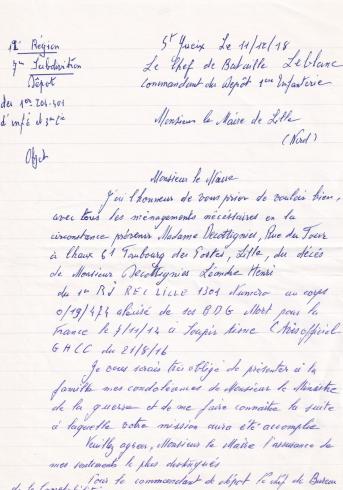 1e Région
7me Subdivision
Dépôt
des 1er 201-401
d'infé et 3me Cie
Objet
St Yrieix Le 11/12/18
Le Chef de Bataille Leblanc
Commandant du Dépôt 1er Infanterie
Monsieur le Maire de Lille
(Nord)
Monsieur le Maire
J'ai l'honneur de vous prier de vouloir bien,
avec tous les ménagements nécessaires en la
circonstance prévenir Madame Decottignies, Rue du Four
à Chaux 61 Faubourg des Postes, Lille, du décès
de Monsieur Decottignies Léandre Henri
du 1er RI REC LILLE 1301 Numéro au corps
0/19/474 de ses Mort pour la
France le 7/11/14 à Soupir Aisne (Avis officiel
GACC du 21/8/16
Je vous serais très obligé de présenter à la
famille mes condoléances de Monsieur le Ministre
de la guerre et de me faire connaître la suite
à laquelle votre mission aura été accomplie
Veuillez agréer, Monsieur le Maire l'assurance de
mes sentiments le plus distingués
Pour le commandant de dépôt le chef de Bureau